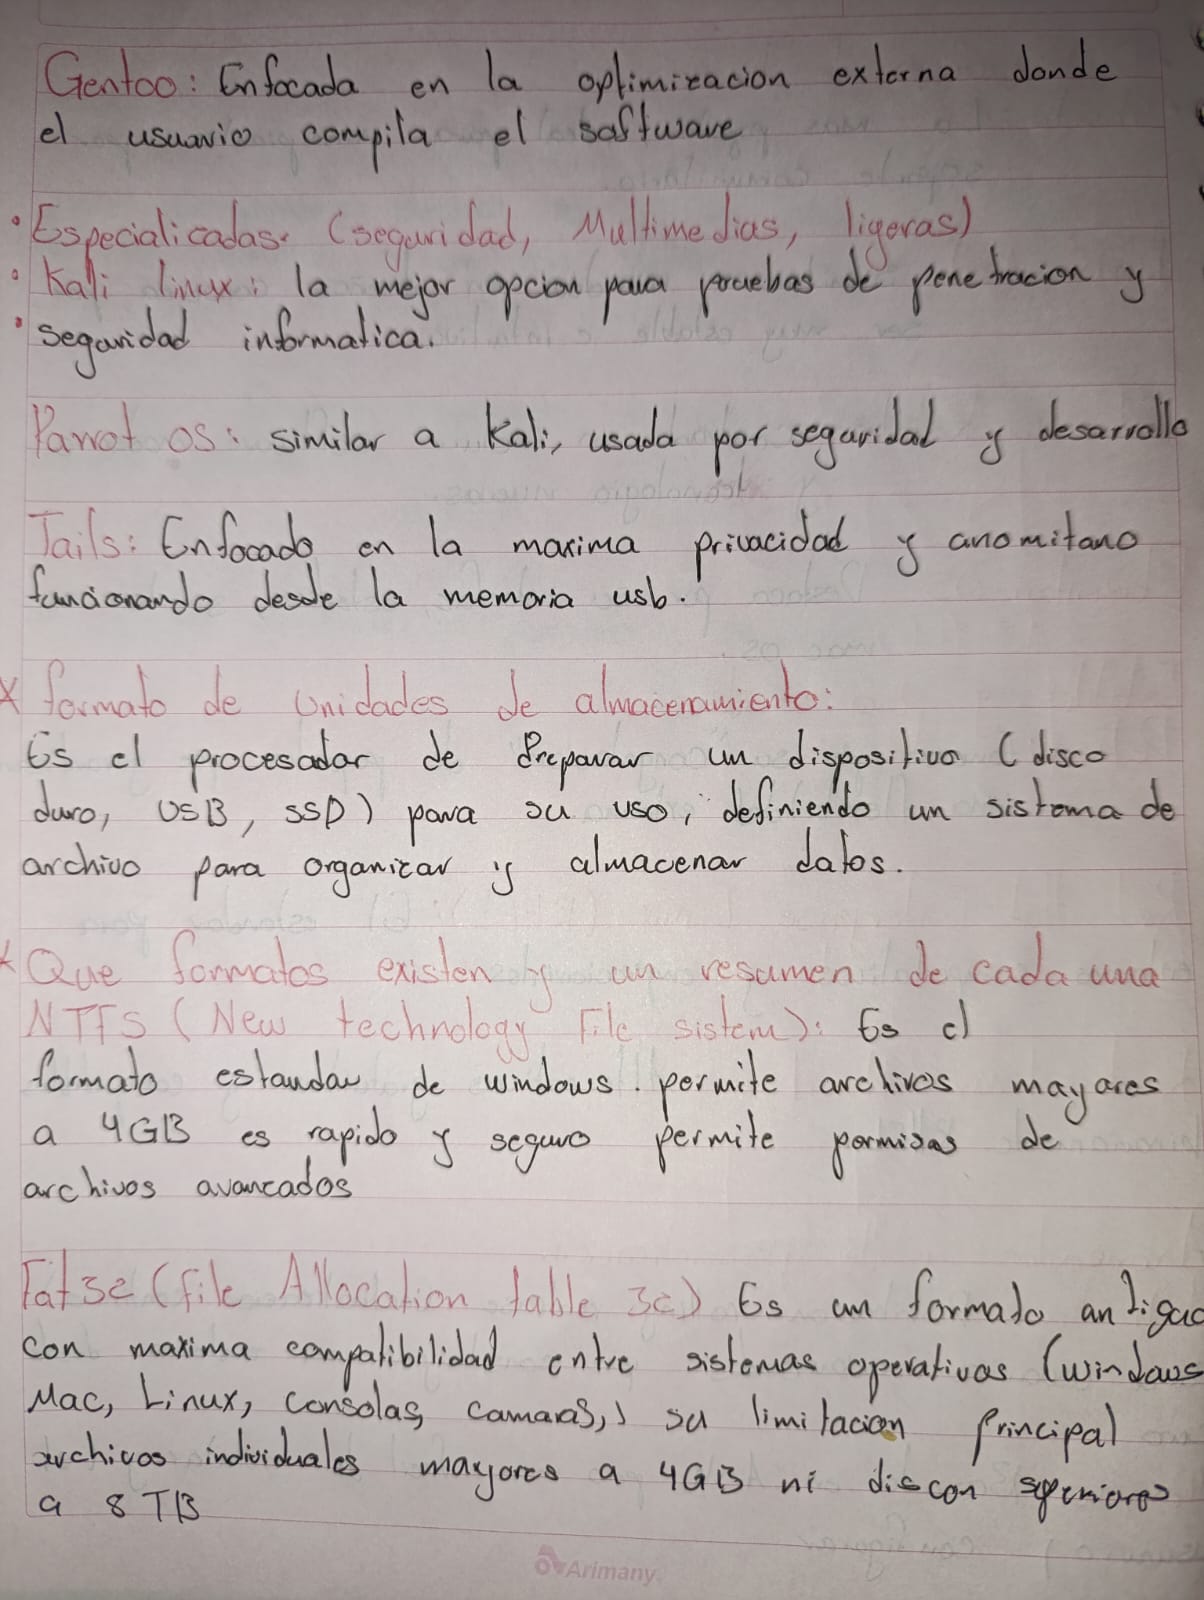 Gentoo: Enfocada en la optimizacion externa donde
el usuario compila el saftware
• Especialicadas. (seguridad, Multimedias, ligeras)
• Kali linux: la mejor opcion para pruebas de penetracion y
• seguridad informatica.
Parrot os: similar a Kali, usada por seguridal y desarrollo
Tails: Enfocado en la maxima privacidad y anomitano
funcionando desde la memoria usb.
x formato de Unidades de almacenamiento:
Es el procesador de Preparar un dispositivo (disco
duro, USB, SSD) para su uso, definiendo un sistema de
archivo para organizar y almacenar datos.
x Que formatos existen y un resumen de cada una
NTFS (New technology File sistem): Es el
formato estandar de windows. permite archivos mayores
a 4GB es rapido y seguro permite permisos de
archivos avanzados
Fat32 (file Allocation table 32) Es un formato antiguo
con maxima compatibilidad entre sistemas operativos (windows
Mac, Linux, consolas, camaras,) su limitacion principal
archivos individuales mayores a 4GB ni discon superiores
a 8 TB
Arimany